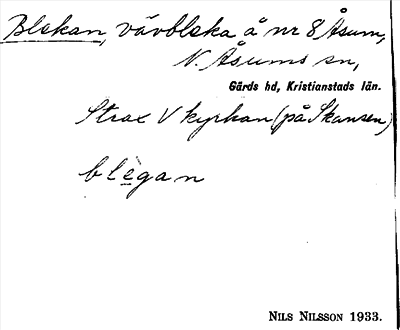 Blekan, vävbleka å nr 8 Åsum,
N. Åsums sn,
Gärds hd, Kristianstads län.
Strax V kyrkan (på Skansen)
blegan
NILS NILSSON 1933.